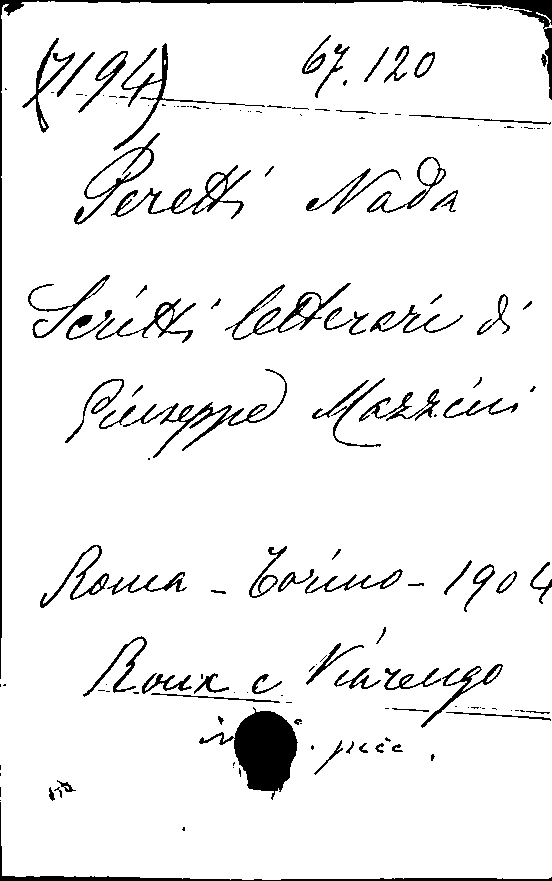 (7194) 67.120
Peretti Nada
Scritti letterari di
Giuseppe Mazzini
Roma - Torino - 1904
Roux e Viarengo
picc.